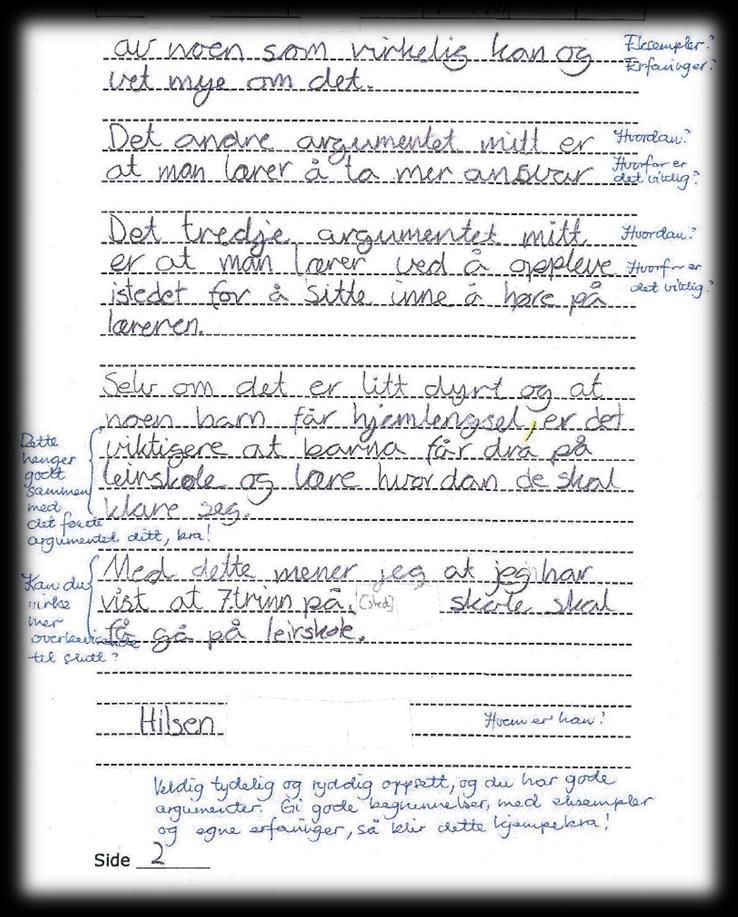 av noen som virkelig kan og
vet mye om det.
Eksempler?
Erfaringer?
Det andre argumentet mitt er
at man lærer å ta mer ansvar
Hvordan?
Hvorfor er
det viktig?
Det tredje argumentet mitt
er at man lærer ved å oppleve
istedet for å sitte inne å høre på
læreren.
Hvordan?
Hvorfor er
det viktig?
Selv om det er litt dyrt og at
noen barn får hjemlengsel, er det
viktigere at barna får dra på
leirskole og lære hvordan de skal
klare seg.
Dette
henger
godt
sammen
med
det første
argumentet ditt, bra!
Med dette mener jeg at jeg har
vist at 7trinn på [sted] skole skal
få gå på leirskole.
Kan du
virke
mer
overbevisende
til slutt?
Hilsen
Hvem er han?
Veldig tydelig og ryddig oppsett, og du har gode
argumenter. Gi gode begrunnelser, med eksempler
og egne erfaringer, så blir dette kjempebra!
Side 2